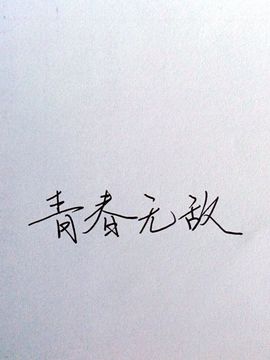 青春无敌